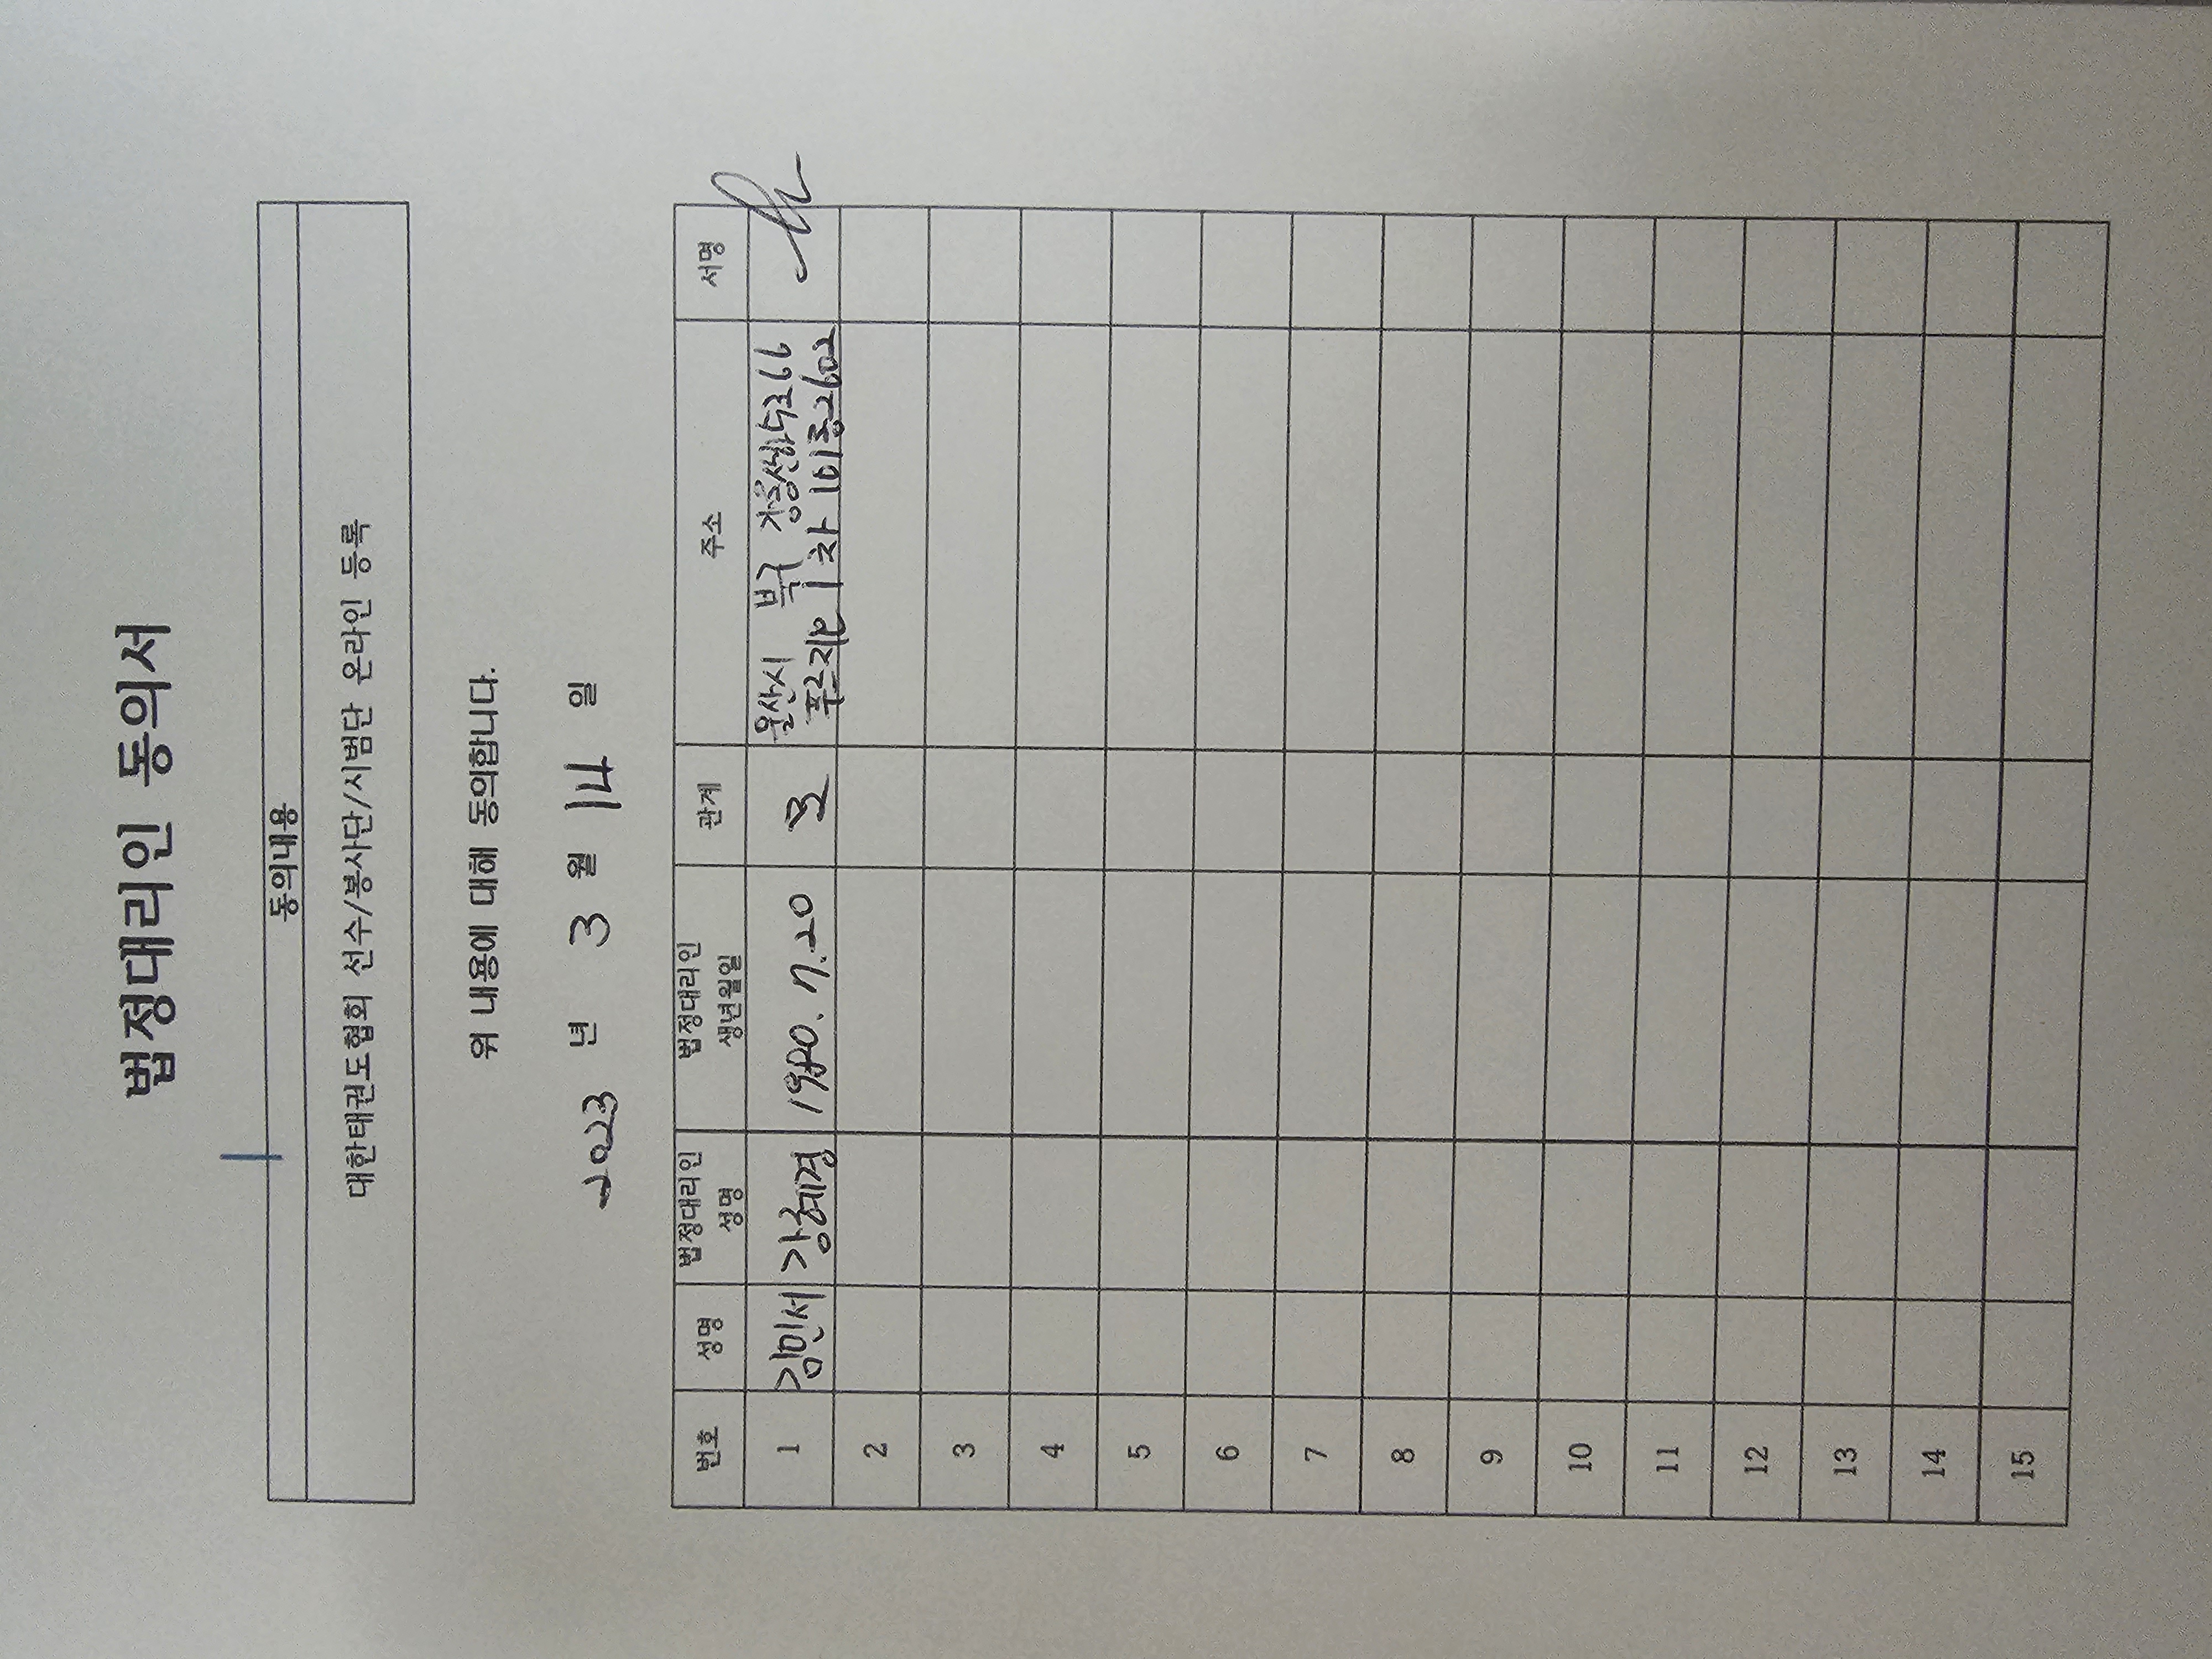 법정대리인 동의서
동의내용
대한태권도협회 선수/봉사단/시범단 온라인 등록
위 내용에 대해 동의합니다.
2023 년 3 월 14 일
번호 성명 법정대리인 성명 법정대리인 생년월일 관계 주소 서명
1 김민서 강혜경 1980. 7. 20 모 울산시 북구 266
푸르지오 1차 101동 2602
2
3
4
5
6
7
8
9
10
11
12
13
14
15